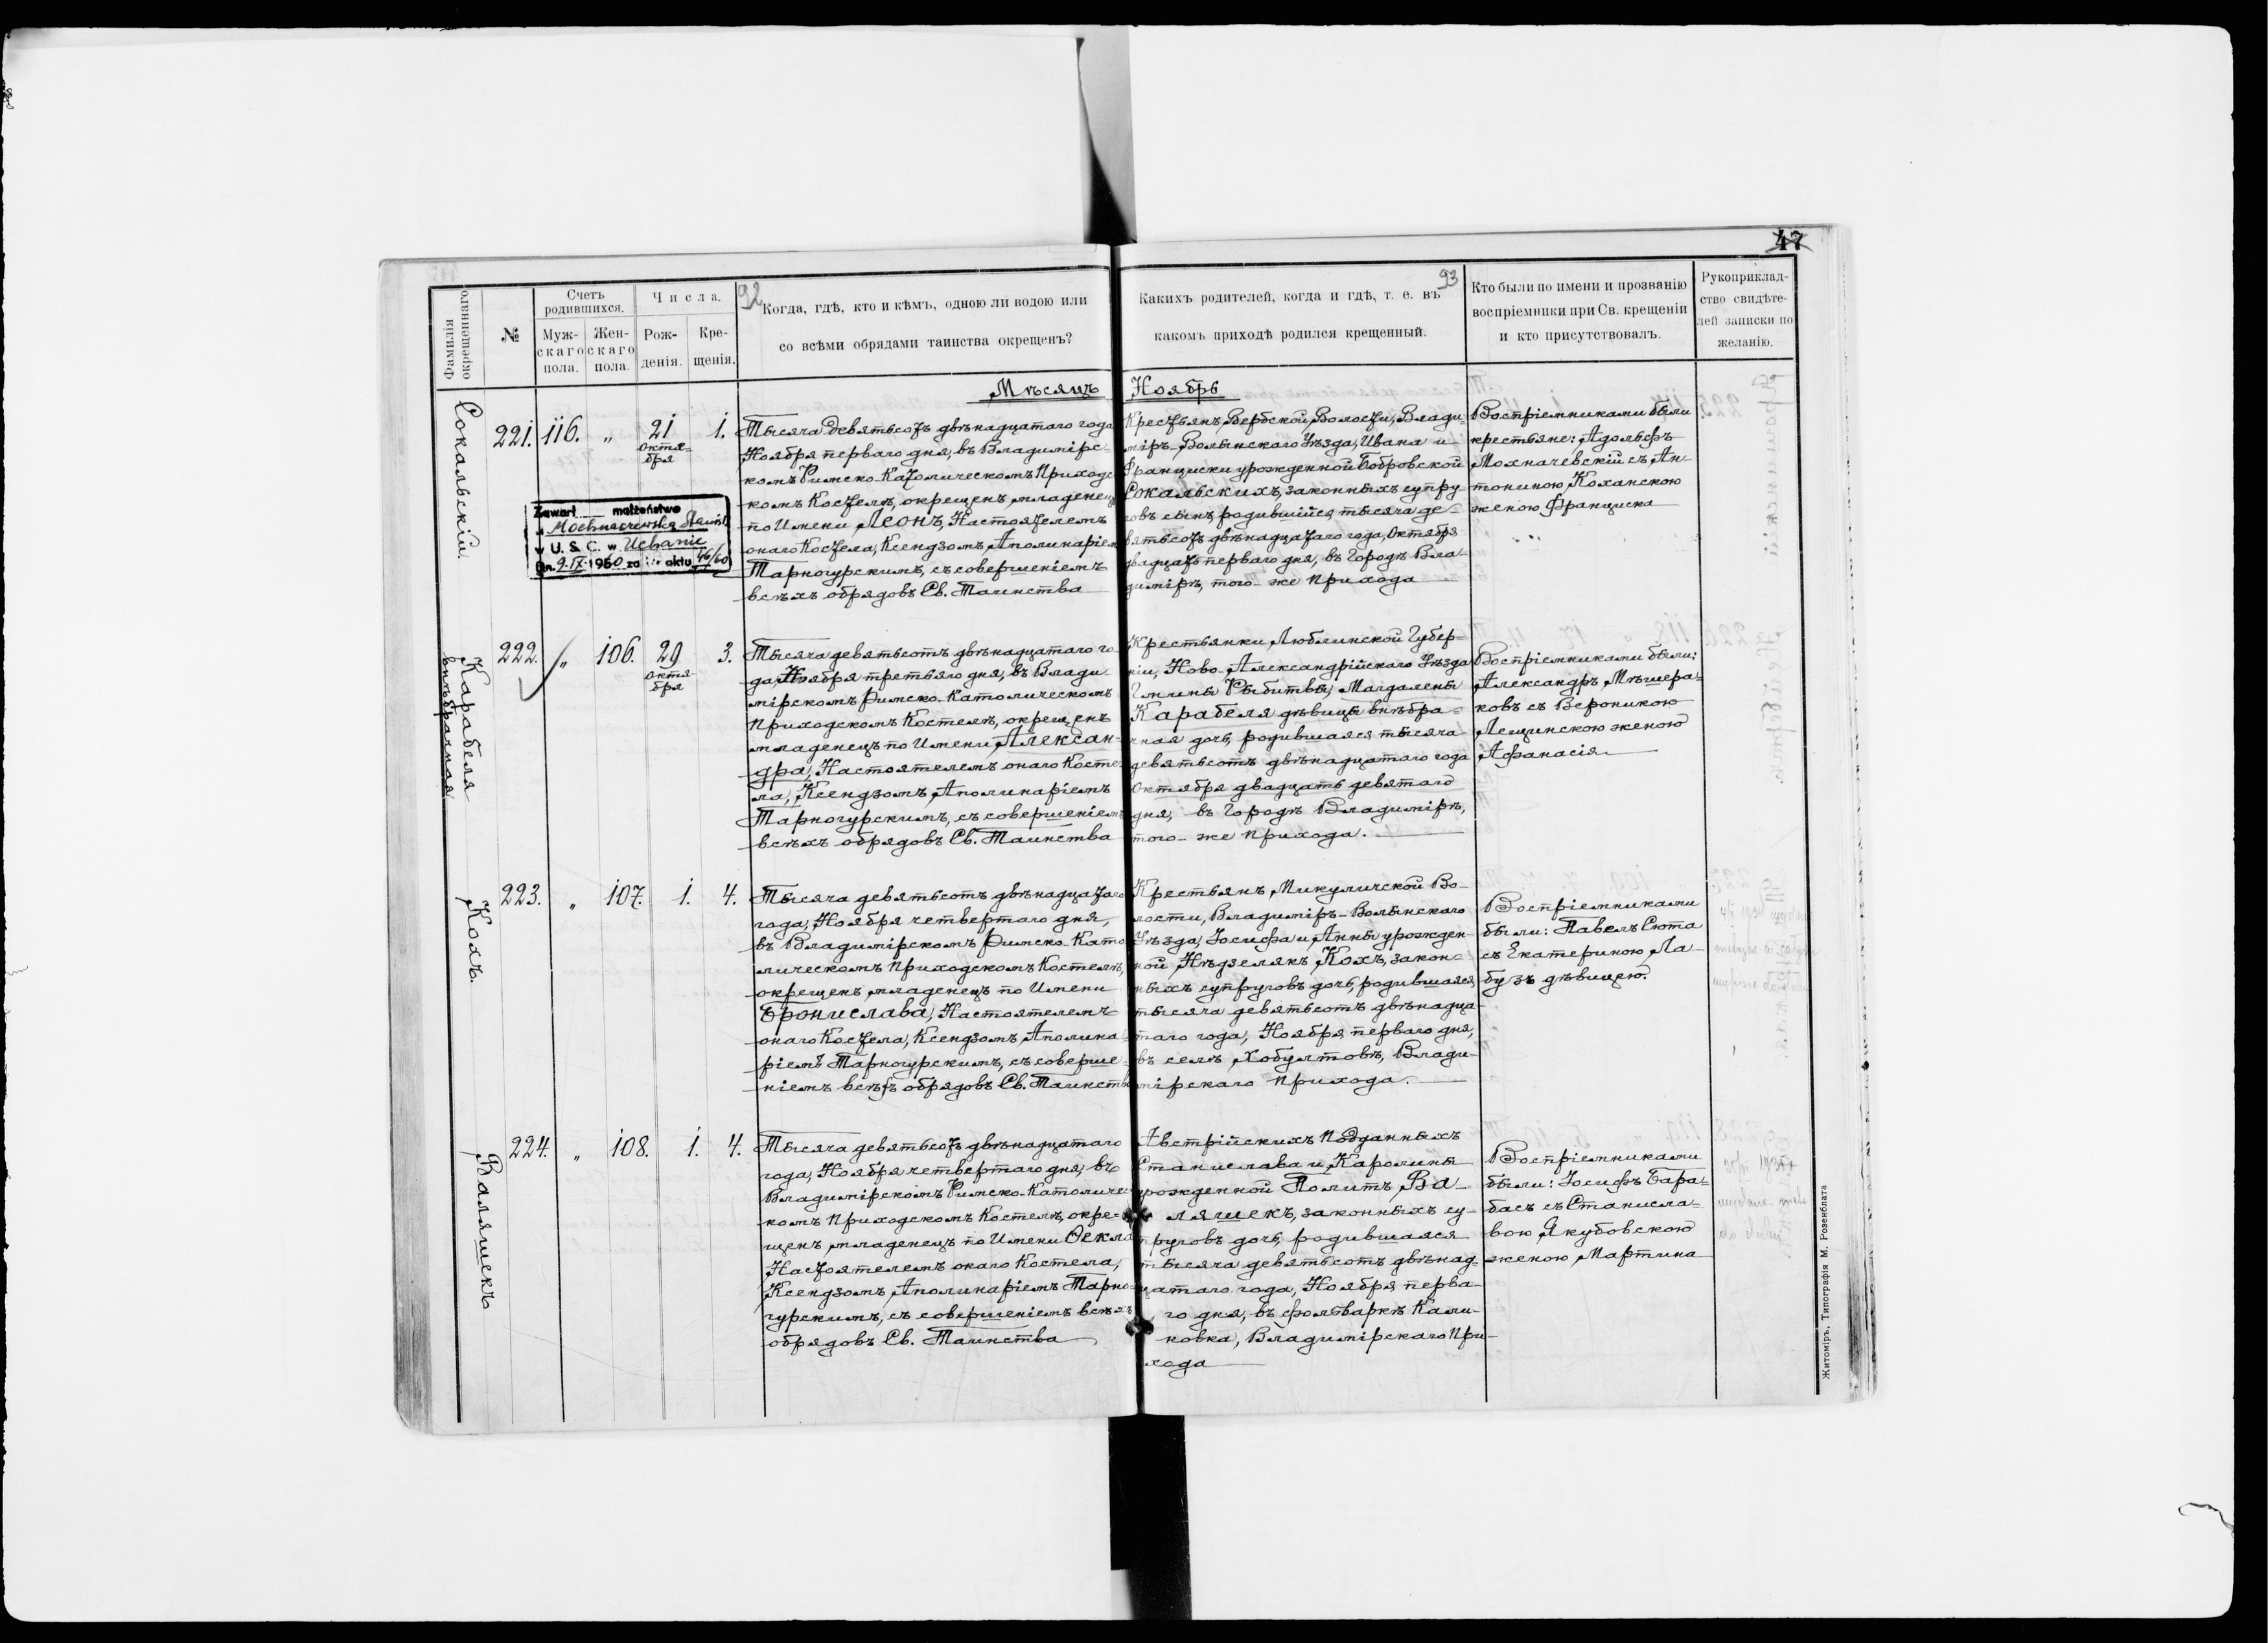 47
92
93
Фамилія
окрещеннаго
№
Счетъ
родившихся.
Муж-
скаго
пола.
Жен-
скаго
пола.
Числа.
Рож-
денія.
Кре-
щенія.
Когда, гдѣ, кто и кѣмъ, одною ли водою или
со всѣми обрядами таинства окрещенъ?
Какихъ родителей, когда и гдѣ, т. е. въ
какомъ приходѣ родился крещенный.
Кто были по имени и прозванію
воспріемники при Св. крещеніи
и кто присутствовалъ.
Рукоприклад-
ство свидѣте-
лей записки по
желанію.
Мѣсяцъ Ноябрь
Сокальскій.
221. 116. „ 21 октя-
бря 1.
Тысяча девятьсотъ двѣнадцатаго года
Ноября перваго дня, въ Владимірс-
комъ Римско-Католическомъ Приходс
комъ Костелѣ, окрещенъ младенецъ
по Имени Леонъ, Настоятелемъ
онаго Костела, Ксендзомъ Аполинаріем
Тарногурскимъ, съ совершеніемъ
всѣхъ обрядовъ Св. Таинства
Крестьянъ, Вербской Волости, Влади-
міръ-Волынскаго Уѣзда, Ивана и
Франциски урожденной Бобровской
Сокальскихъ, законныхъ супру
говъ сынъ, родившійся тысяча де-
вятьсотъ двѣнадцатаго года, Октября
двадцать перваго дня, въ Городѣ Вла-
димірѣ, того-же прихода
Воспріемниками были
крестьяне: Адольфъ
Мохначевскій съ Ан-
тониною Коханскою
женою Франциска
Zawarł małżeństwo
z Mochnaczewską Stanisł.
w U. S. C. w Uchanie
dn. 9.IX.1960 za nr aktu 46/60
Карабеля
внѣбрачная
222. „ 106. 29 октя
бря 3.
Тысяча девятьсотъ двѣнадцатаго го
да Ноября третьяго дня, въ Влади
мірскомъ Римско-Католическомъ
Приходскомъ Костелѣ, окрещенъ
младенецъ по Имени Алексан-
дра, Настоятелемъ онаго Косте
ла, Ксендзомъ Аполинаріемъ
Тарногурскимъ, съ совершеніемъ
всѣхъ обрядовъ Св. Таинства
Крестьянки, Люблинской Губер-
ніи, Ново-Александрійскаго Уѣзда
Гмины Рыбитвы, Магдалены
Карабеля дѣвицы внѣбра-
чная дочь, родившаяся тысяча
девятьсотъ двѣнадцатаго года
Октября двадцать девятаго
дня, въ Городѣ Владимірѣ,
того-же прихода.
Воспріемниками были:
Александръ Мѣшера-
ковъ съ Вероникою
Лещинскою женою
Афанасія
Кохъ.
223. „ 107. 1. 4.
Тысяча девятьсотъ двѣнадцатаго
года, Ноября четвертаго дня,
въ Владимірскомъ Римско-Като
лическомъ Приходскомъ Костелѣ,
окрещенъ младенецъ по Имени
Бронислава, Настоятелемъ
онаго Костела, Ксендзомъ Аполина-
ріемъ Тарногурскимъ, съ соверше-
ніемъ всѣхъ обрядовъ Св. Таинств
Крестьянъ, Микуличской Во-
лости, Владиміръ-Волынскаго
Уѣзда, Іосифа и Анны урожден
ной Нѣдзелякъ Кохъ, закон-
ныхъ супруговъ дочь, родившаяся
тысяча девятьсотъ двѣнадца-
таго года, Ноября перваго дня,
въ селѣ Хобултовѣ, Влади-
мірскаго прихода.
Воспріемниками
были: Павелъ Сюта
съ Екатериною Ла-
бузъ дѣвицею.
Валяшекъ
224. „ 108. 1. 4.
Тысяча девятьсотъ двѣнадцатаго
года, Ноября четвертаго дня, въ
Владимірскомъ Римско-Католичес
комъ Приходскомъ Костелѣ, окре-
щенъ младенецъ по Имени Ѳекла
Настоятелемъ онаго Костела,
Ксендзомъ Аполинаріемъ Тарно-
гурскимъ, съ совершеніемъ всѣхъ
обрядовъ Св. Таинства
Австрійскихъ Подданныхъ
Станислава и Каролины
урожденной Политъ Ва-
ляшекъ, законныхъ су-
пруговъ дочь, родившаяся
тысяча девятьсотъ двѣнад-
цатаго года, Ноября перва-
го дня, въ фольваркѣ Кали-
новка, Владимірскаго При-
хода
Воспріемниками
были: Іосифъ Бара-
басъ съ Станисла-
вою Якубовскою
женою Мартина
Житоміръ, Типографія М. Розенблата